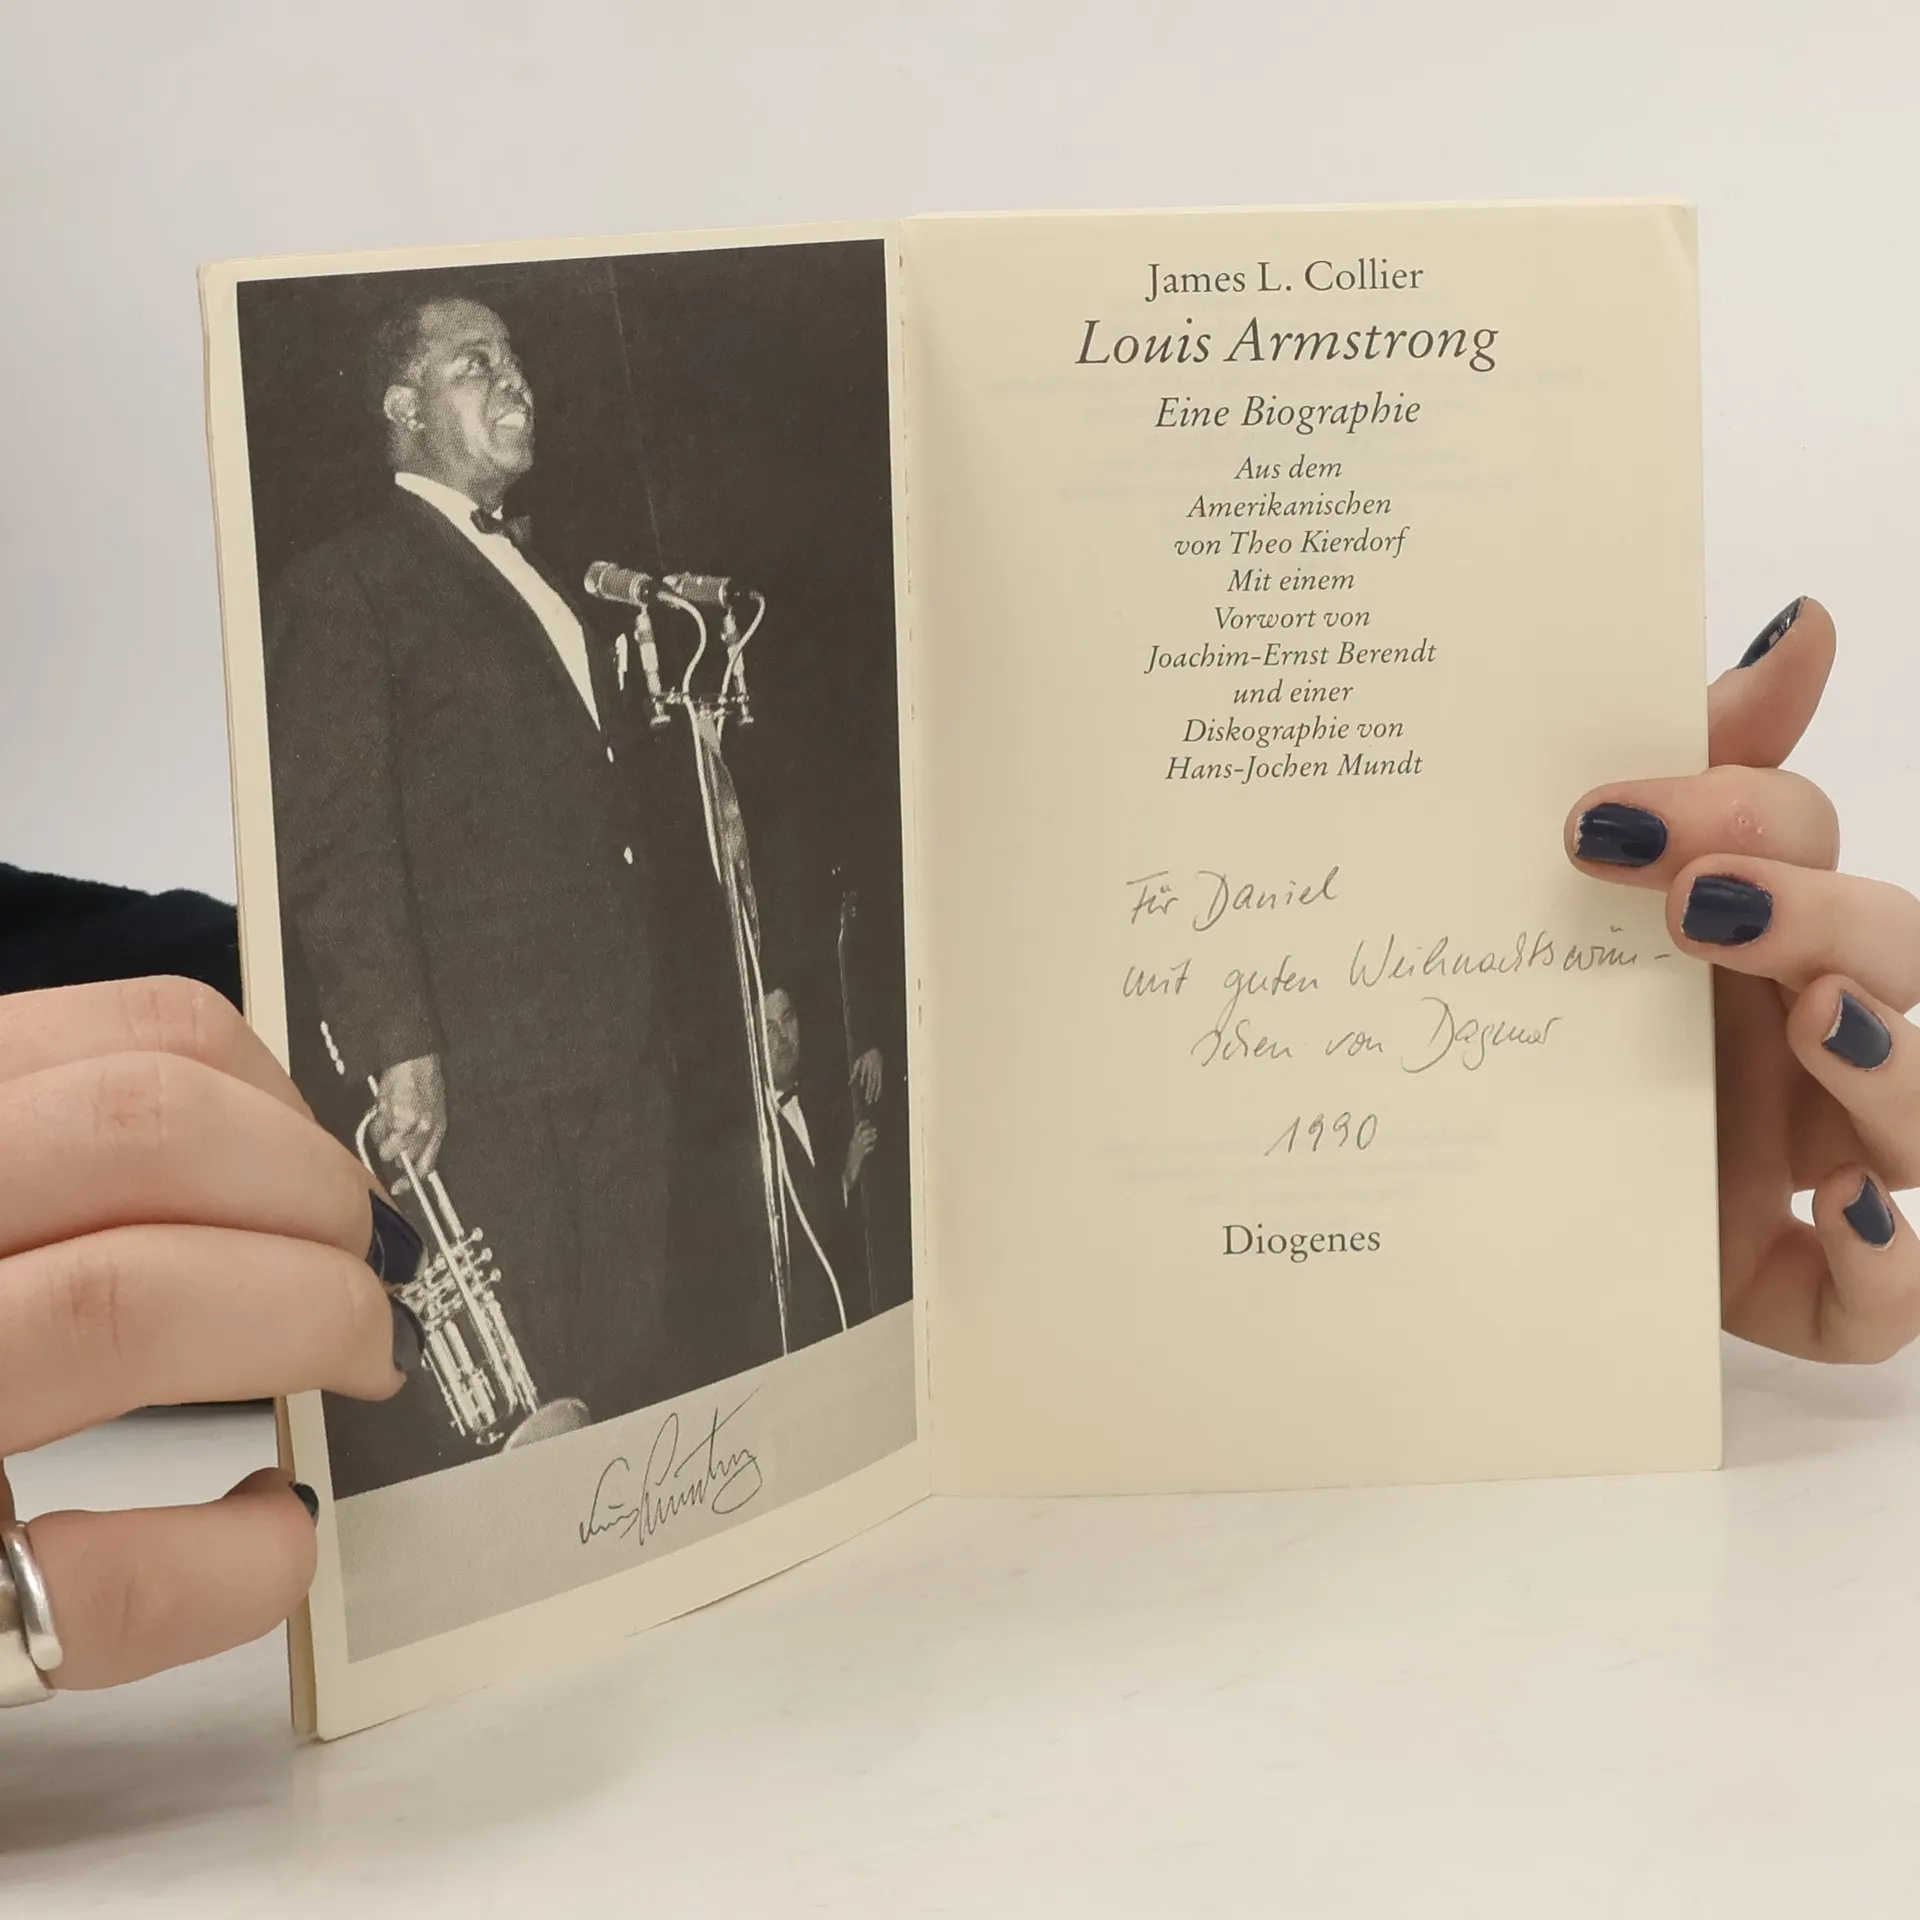 James L. Collier
Louis Armstrong
Eine Biographie
Aus dem
Amerikanischen
von Theo Kierdorf
Mit einem
Vorwort von
Joachim-Ernst Berendt
und einer
Diskographie von
Hans-Jochen Mundt
Für Daniel
mit guten Weihnachtswün-
schen von Dagmar
1990
Diogenes
Louis Armstrong